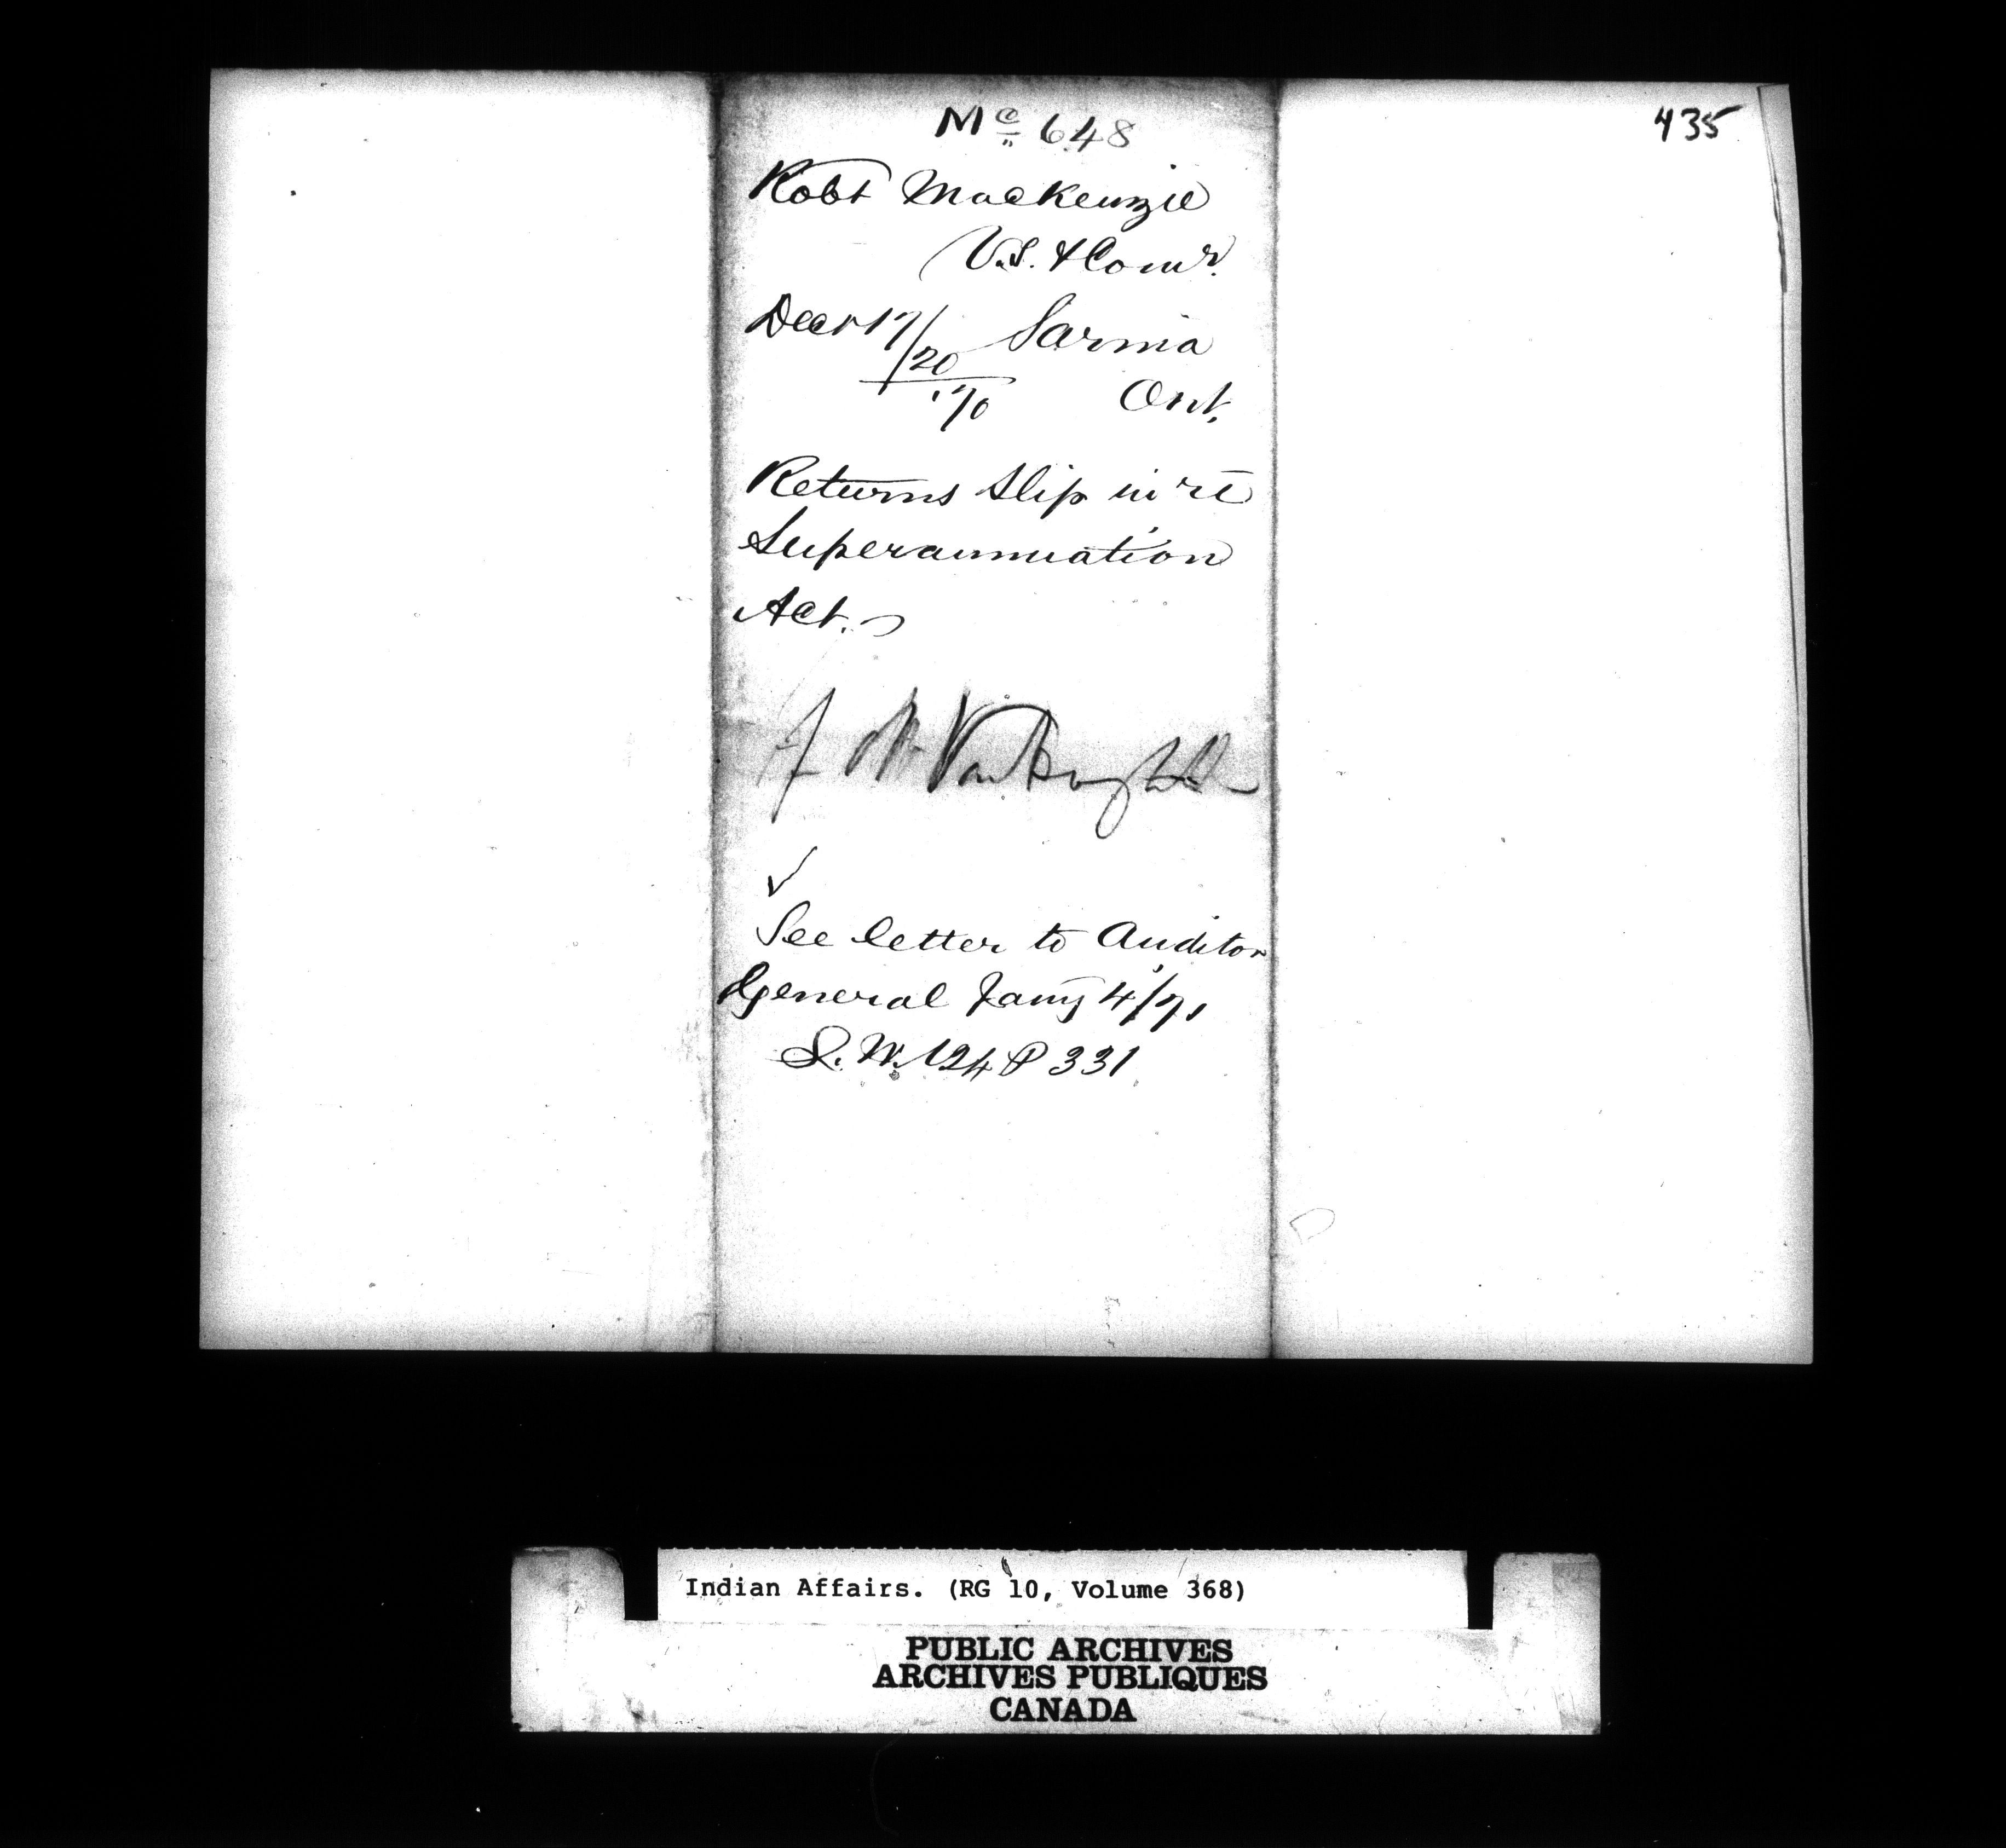 435
Mc 648
Robt Mackenzie
V.S. & Comr.
Decr 17/20 Sarnia
'70 Ont.
Returns slip in re
Superannuation
Act.
✓
See letter to Auditor
General Jany 4/71
L. W. 124 P 331
Indian Affairs. (RG 10, Volume 368)
PUBLIC ARCHIVES
ARCHIVES PUBLIQUES
CANADA